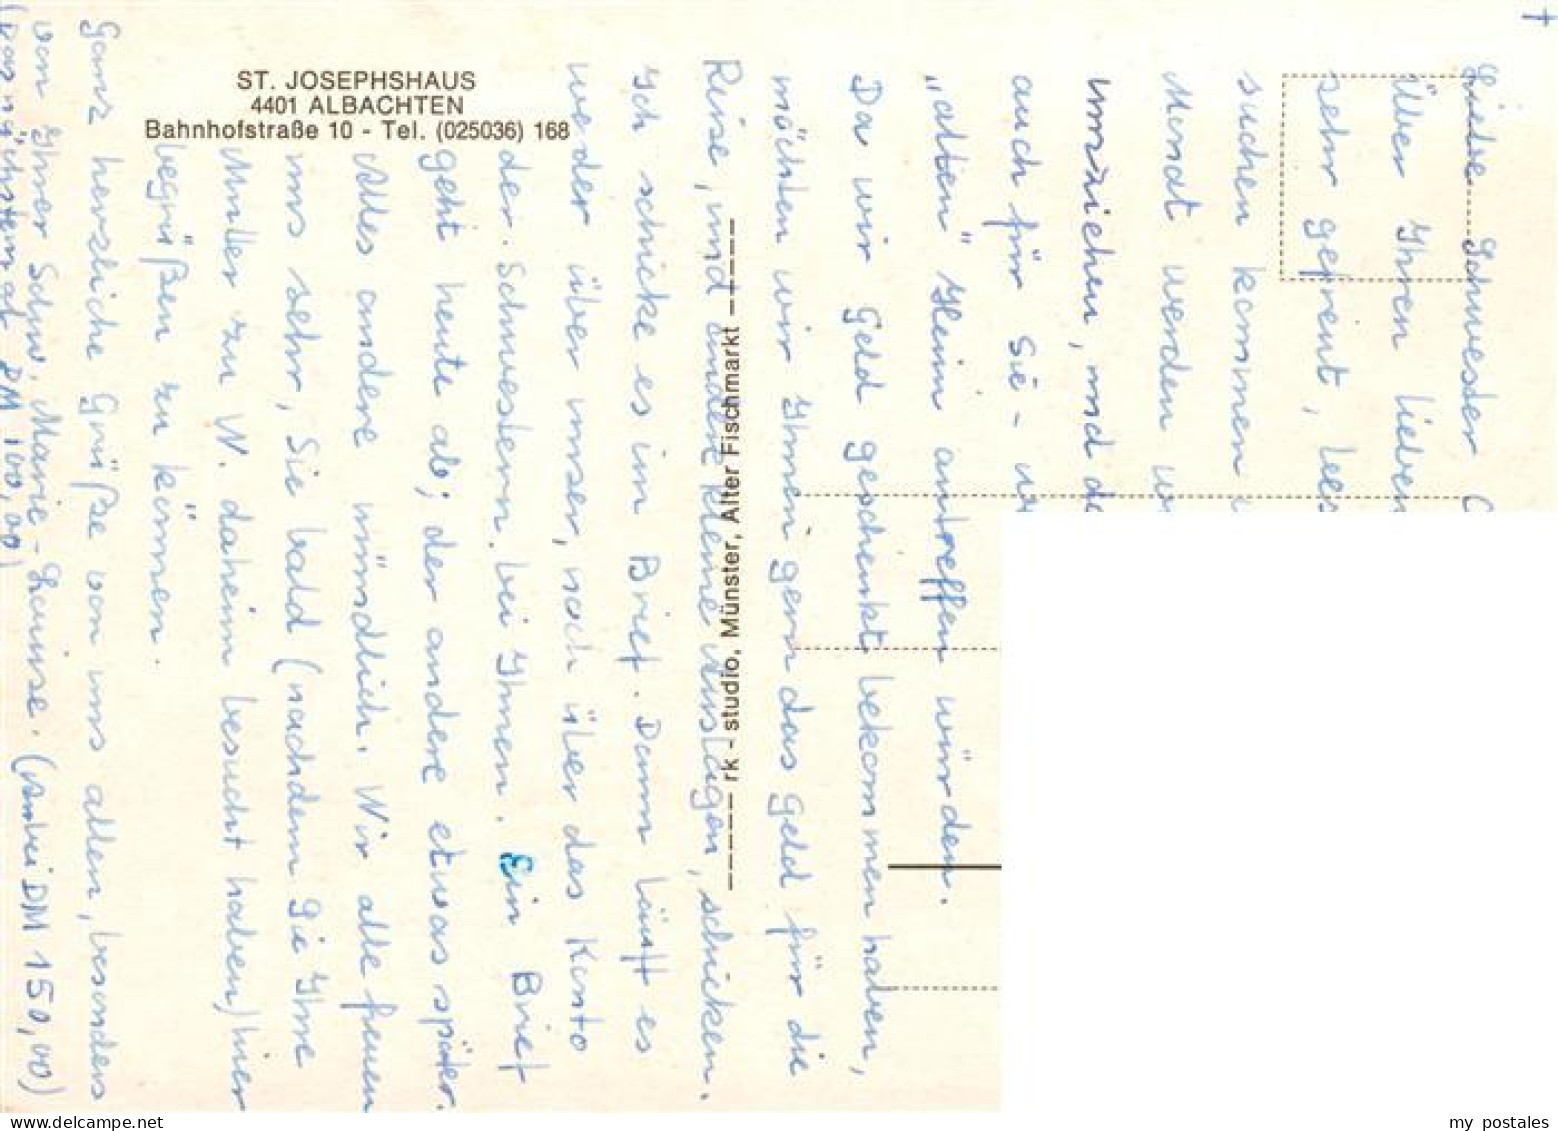 ST. JOSEPHSHAUS
4401 ALBACHTEN
Bahnhofstraße 10 - Tel. (025036) 168
rk - studio, Münster, Alter Fischmarkt
†
Liebe Schwester
Über Ihren lieben
sehr gefreut,
suchen kommen
Monat werden
umziehen, und
auch für Sie -
"alten" Heim antreffen würden.
Da wir Geld geschenkt bekommen haben,
möchten wir Ihnen gern das Geld für die
Reise, und andere kleine Auslagen, schicken.
Ich schicke es im Brief. Dann läuft es
weder über unser, noch über das Konto
der Schwestern bei Ihnen. Ein Brief
geht heute ab; der andere etwas später.
Alles andere mündlich. Wir alle freuen
uns sehr, Sie bald (nachdem Sie Ihre
Mutter zu W. daheim besucht haben) hier
begrüßen zu können.
Ganz herzliche Grüße von uns allen, besonders
von Ihrer Schw. Marie-Luise. (anbei DM 150,00)
DM 100,00)
my postales